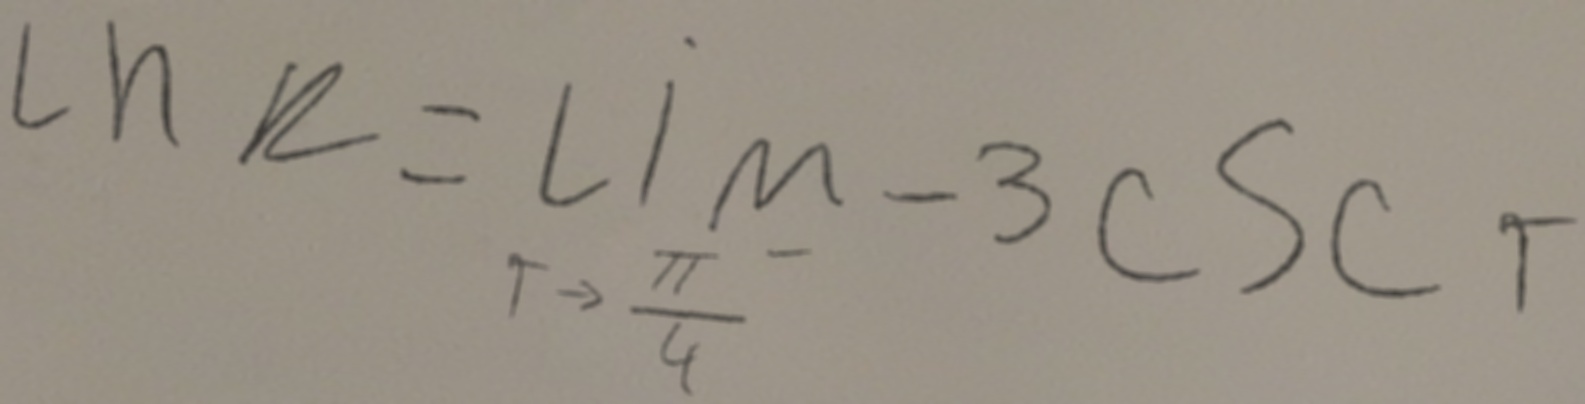 ln k = lim_{T→\frac{π}{4}^-} -3 csc T